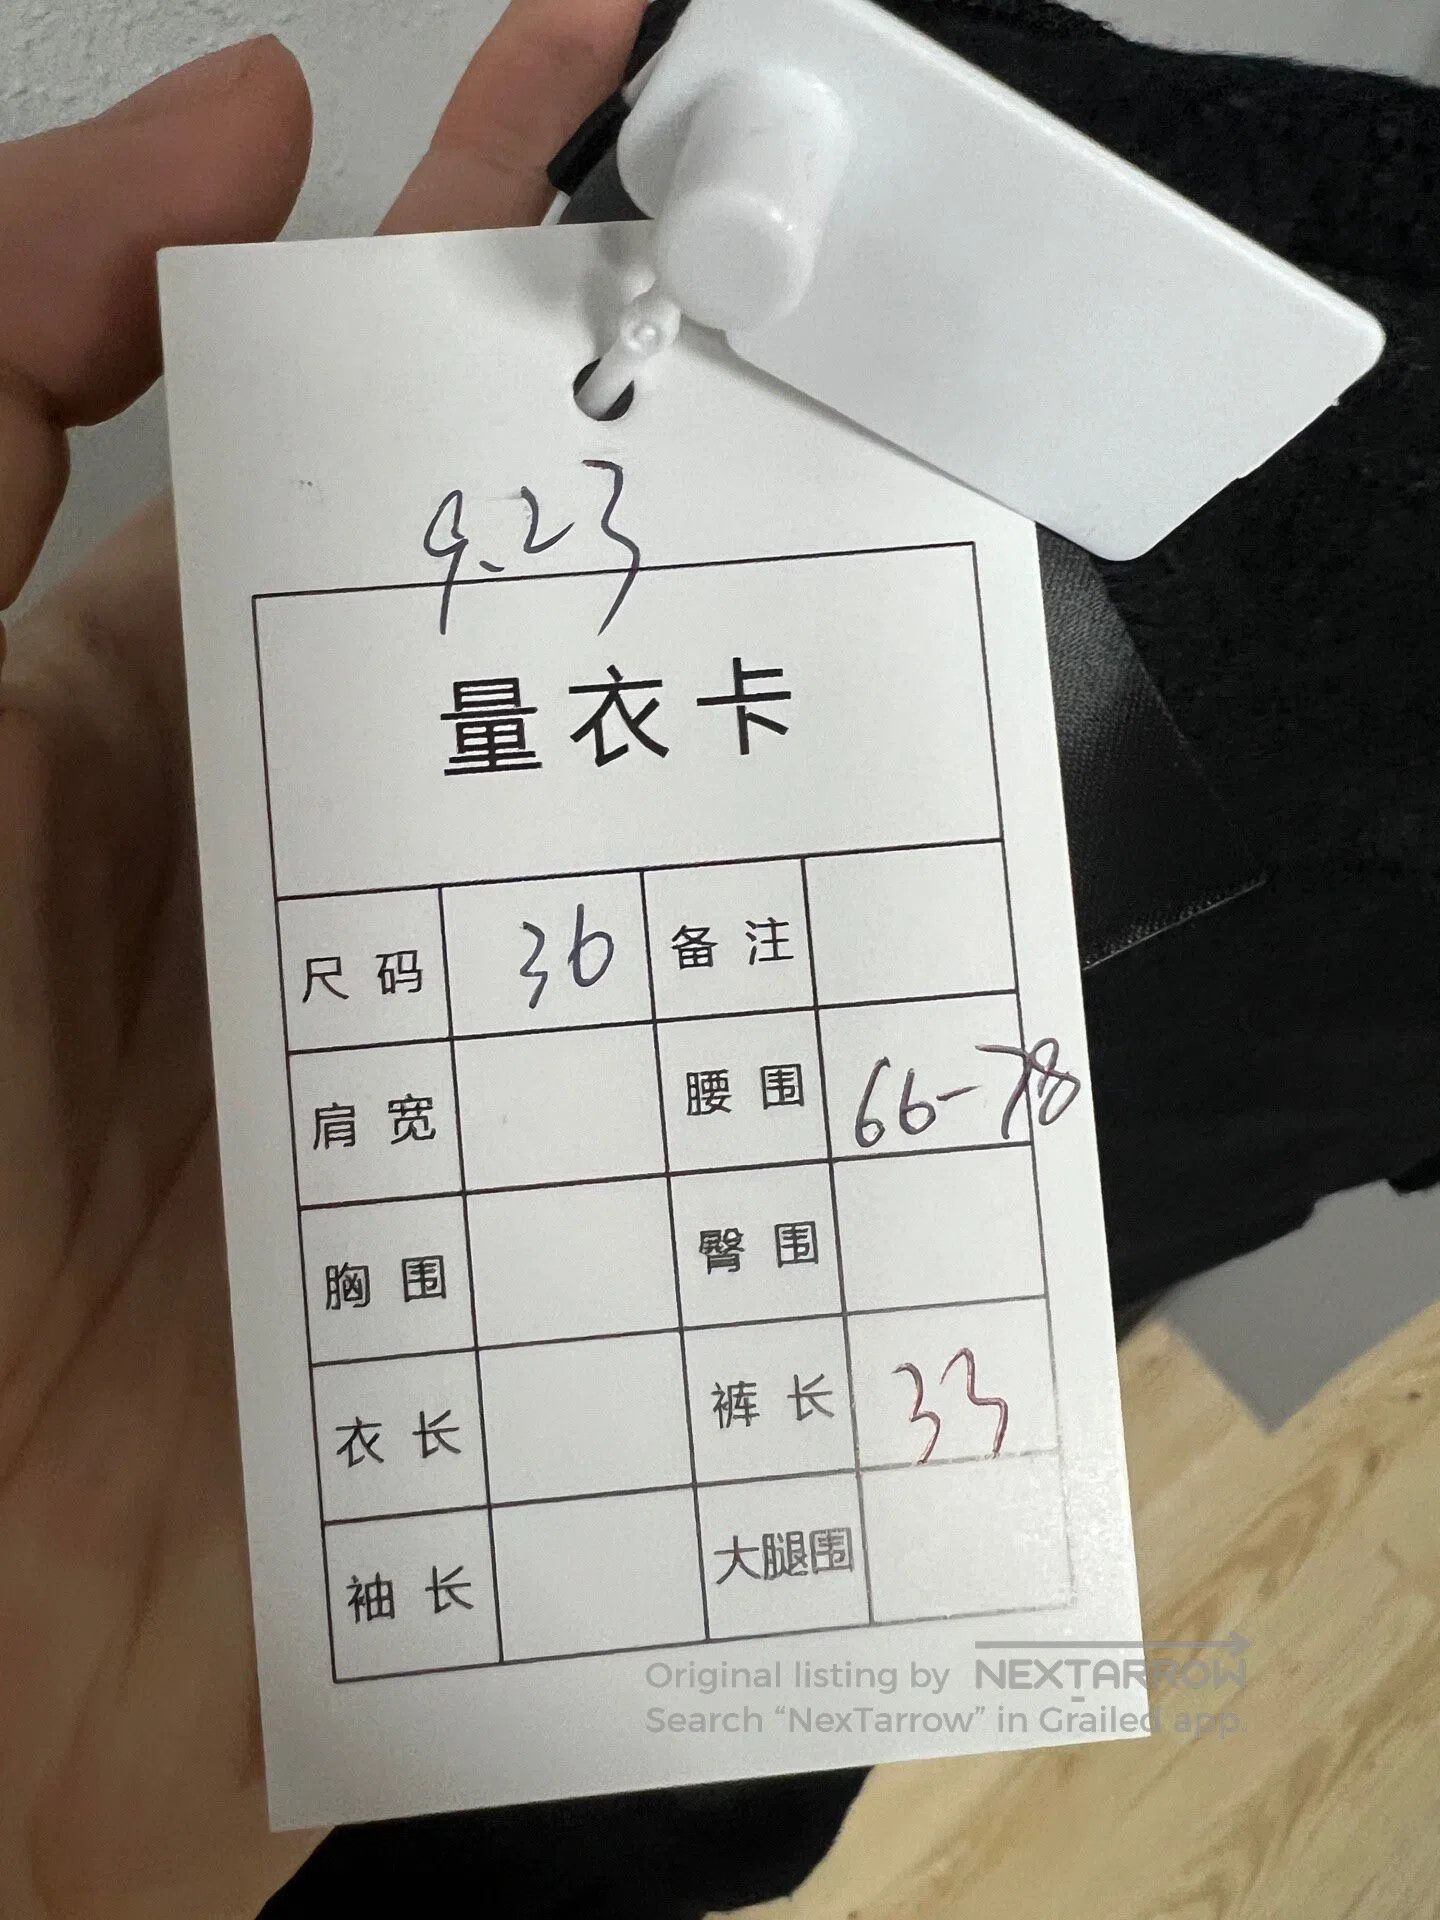 9.23
量衣卡
尺码 36 备注
肩宽 腰围 66-78
胸围 臀围
衣长 裤长 33
袖长 大腿围
Original listing by NEXTARROW
Search “NexTarrow” in Grailed app.